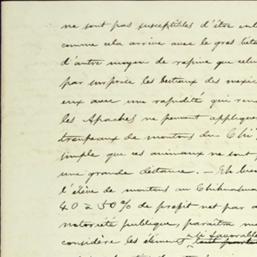 ne sont pas susceptibles d'être enl
comme cela arrive avec le gros béta
d'autre moyen de rapine que celui
par surprise les bestiaux des mexic
eux avec une rapidité qui ren
les Apaches ne peuvent applique
troupeaux de moutons du Chi
simple que ces animaux ne sont p
une grande distance. —
l'élève de moutons au Chihuahua
40 à 50 % de profit net par a
notoriété publique, paraître
si favorable
considère les élément